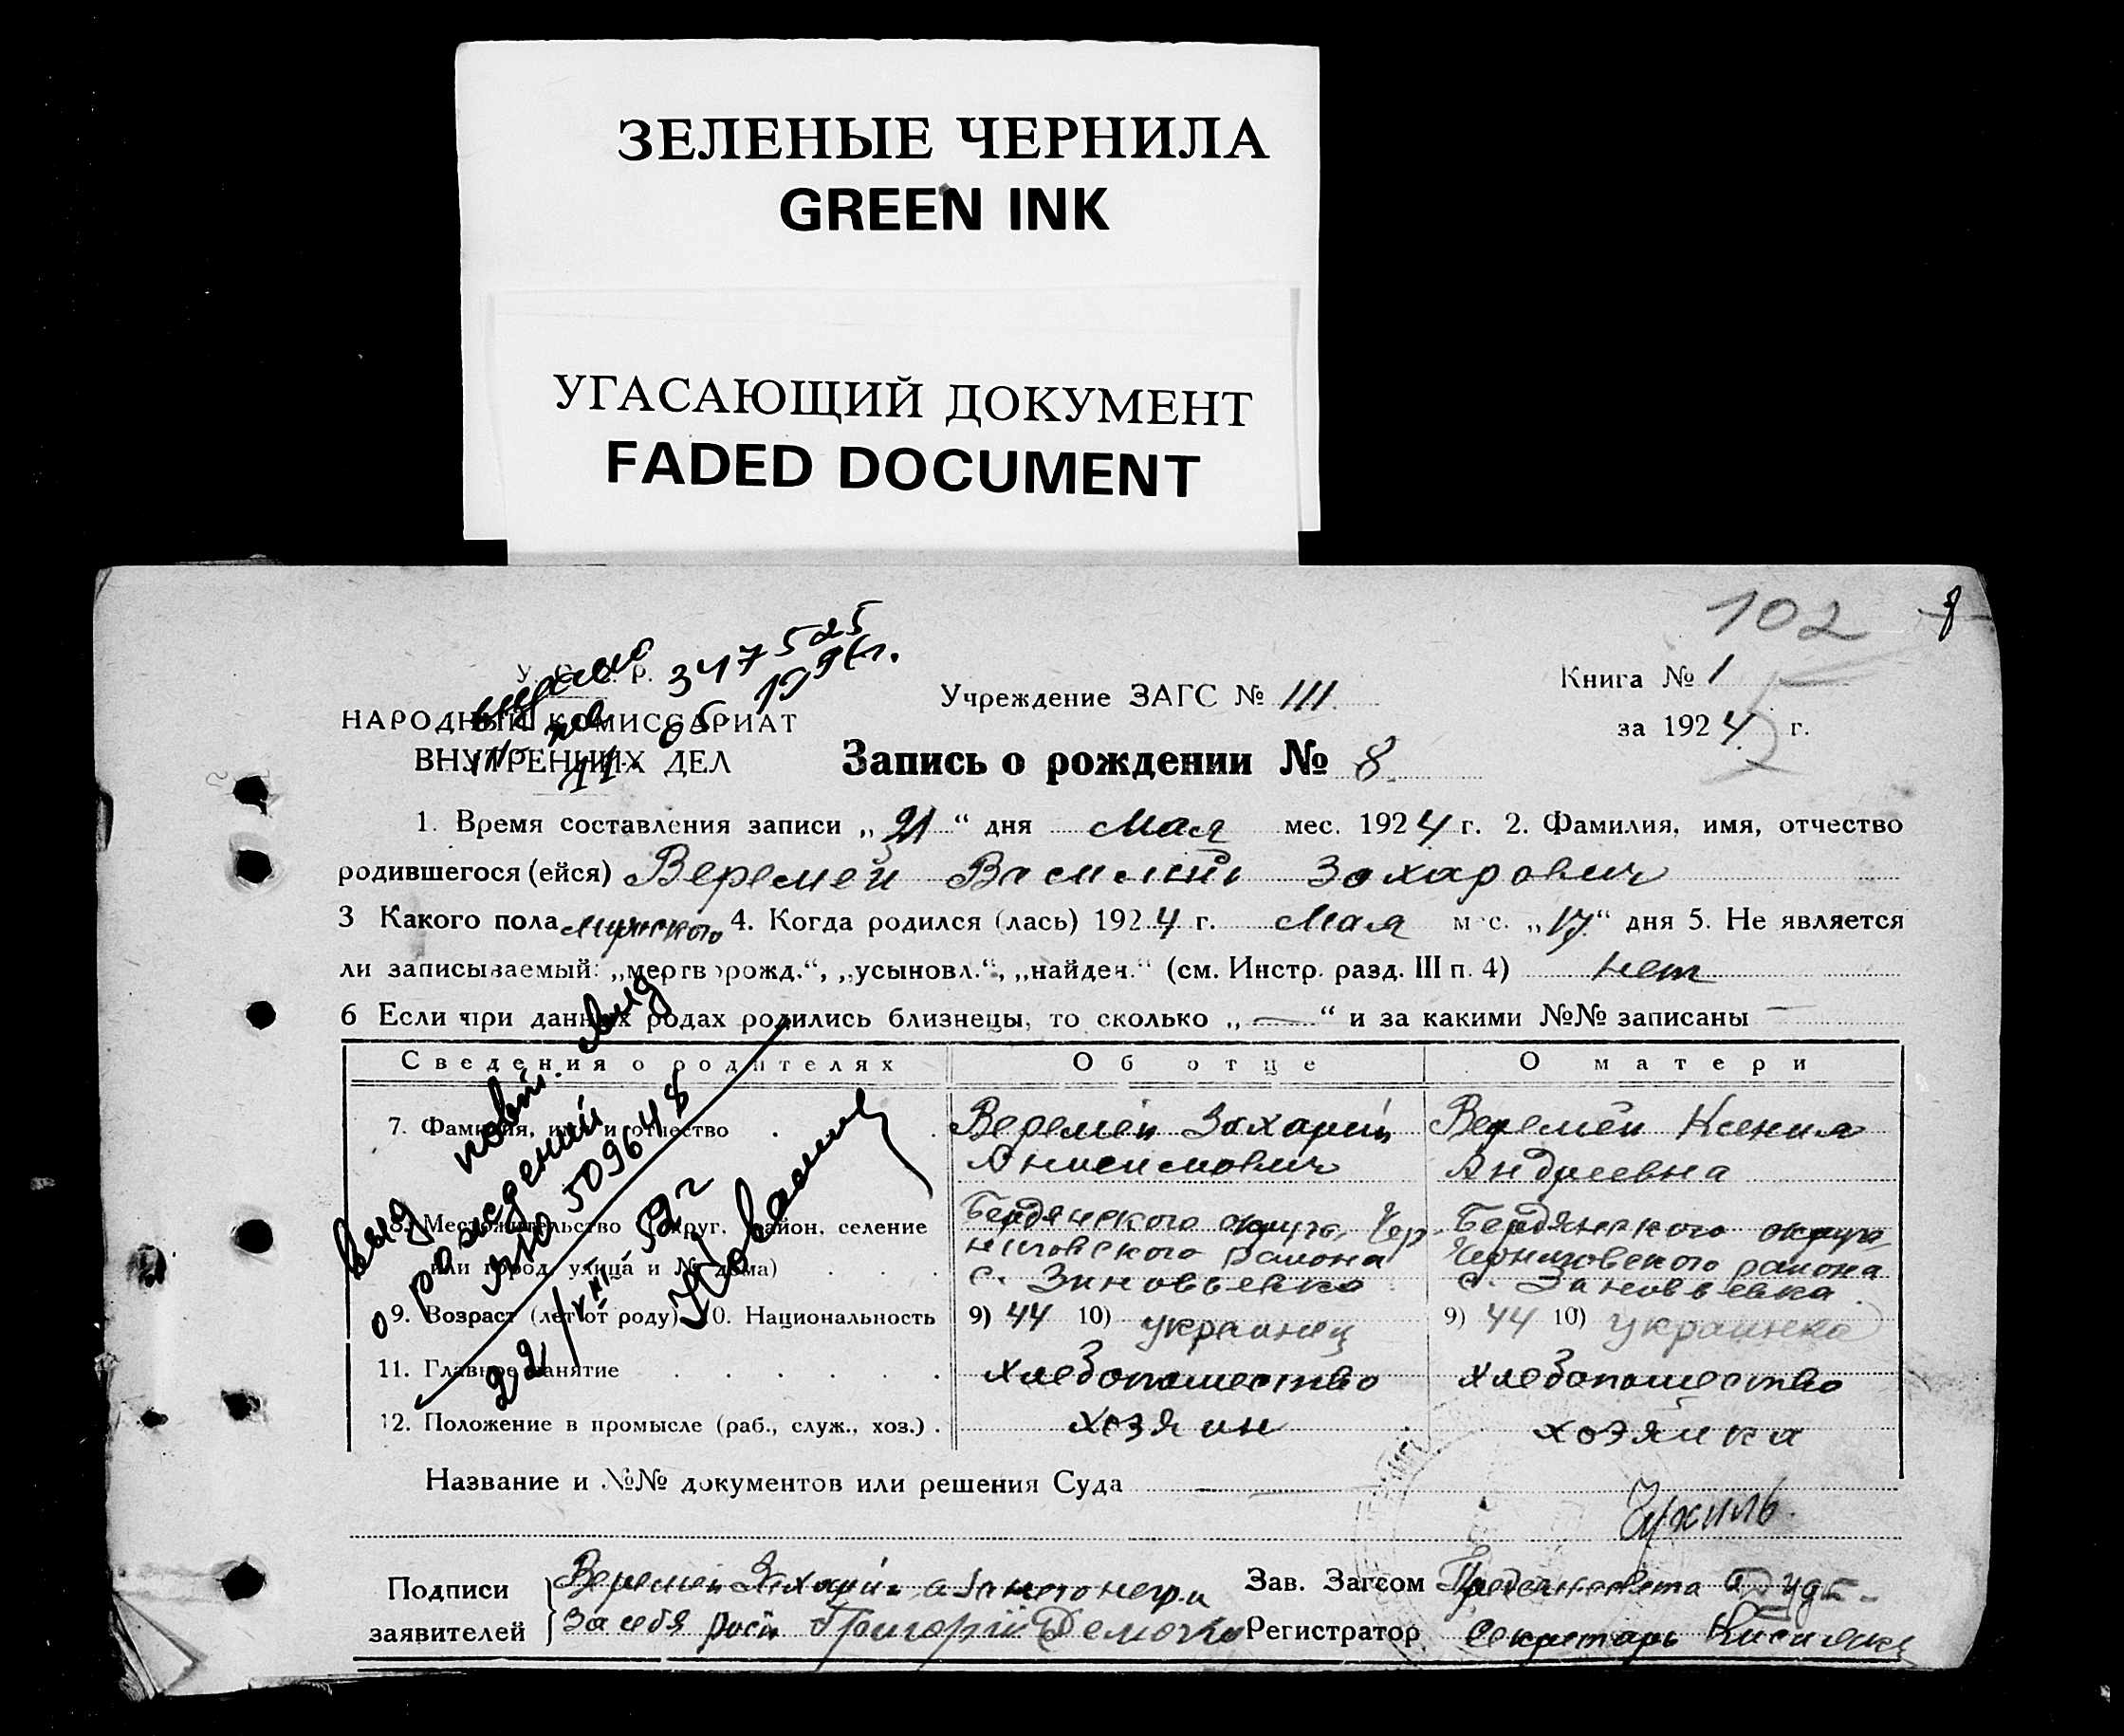 ЗЕЛЕНЫЕ ЧЕРНИЛА
GREEN INK
УГАСАЮЩИЙ ДОКУМЕНТ
FADED DOCUMENT
102 8
347525
1996г.
У. С. С. Р.
НАРОДНЫЙ КОМИССАРИАТ
ВНУТРЕННИХ ДЕЛ
Учреждение ЗАГС № III
Книга № 1
за 1924 г.
Запись о рождении № 8
1. Время составления записи „21“ дня Мая мес. 1924 г. 2. Фамилия, имя, отчество
родившегося (ейся) Веремей Василий Захарович
3 Какого пола мужского 4. Когда родился (лась) 1924 г. Мая мес. „17“ дня 5. Не является
ли записываемый: „мертворожд.“, „усыновл.“, „найден.“ (см. Инстр. разд. III п. 4) нет
6 Если при данных родах родились близнецы, то сколько „—“ и за какими №№ записаны —
Сведения о родителях Об отце О матери
7. Фамилия, имя и отчество Веремей Захарий Веремей Ксения
Анисимович Андреевна
8. Местожительство (округ, район, селение Бердянского округа, Чер- Бердянского округа,
или город, улица и № дома) ниговского района Черниговского района
с. Зиновьевка с. Зиновьевка
9. Возраст (лет от роду) 10. Национальность 9) 44 10) украинец 9) 44 10) украинка
11. Главное занятие хлебопашество хлебопашество
12. Положение в промысле (раб., служ., хоз.) хозяин хозяйка
Выд повт. свид
о рождении
509648
22/XII 59г
Название и №№ документов или решения Суда —
Подписи Веремей Захарий а Зав. Загсом
заявителей за себя Григорій Регистратор Секретарь